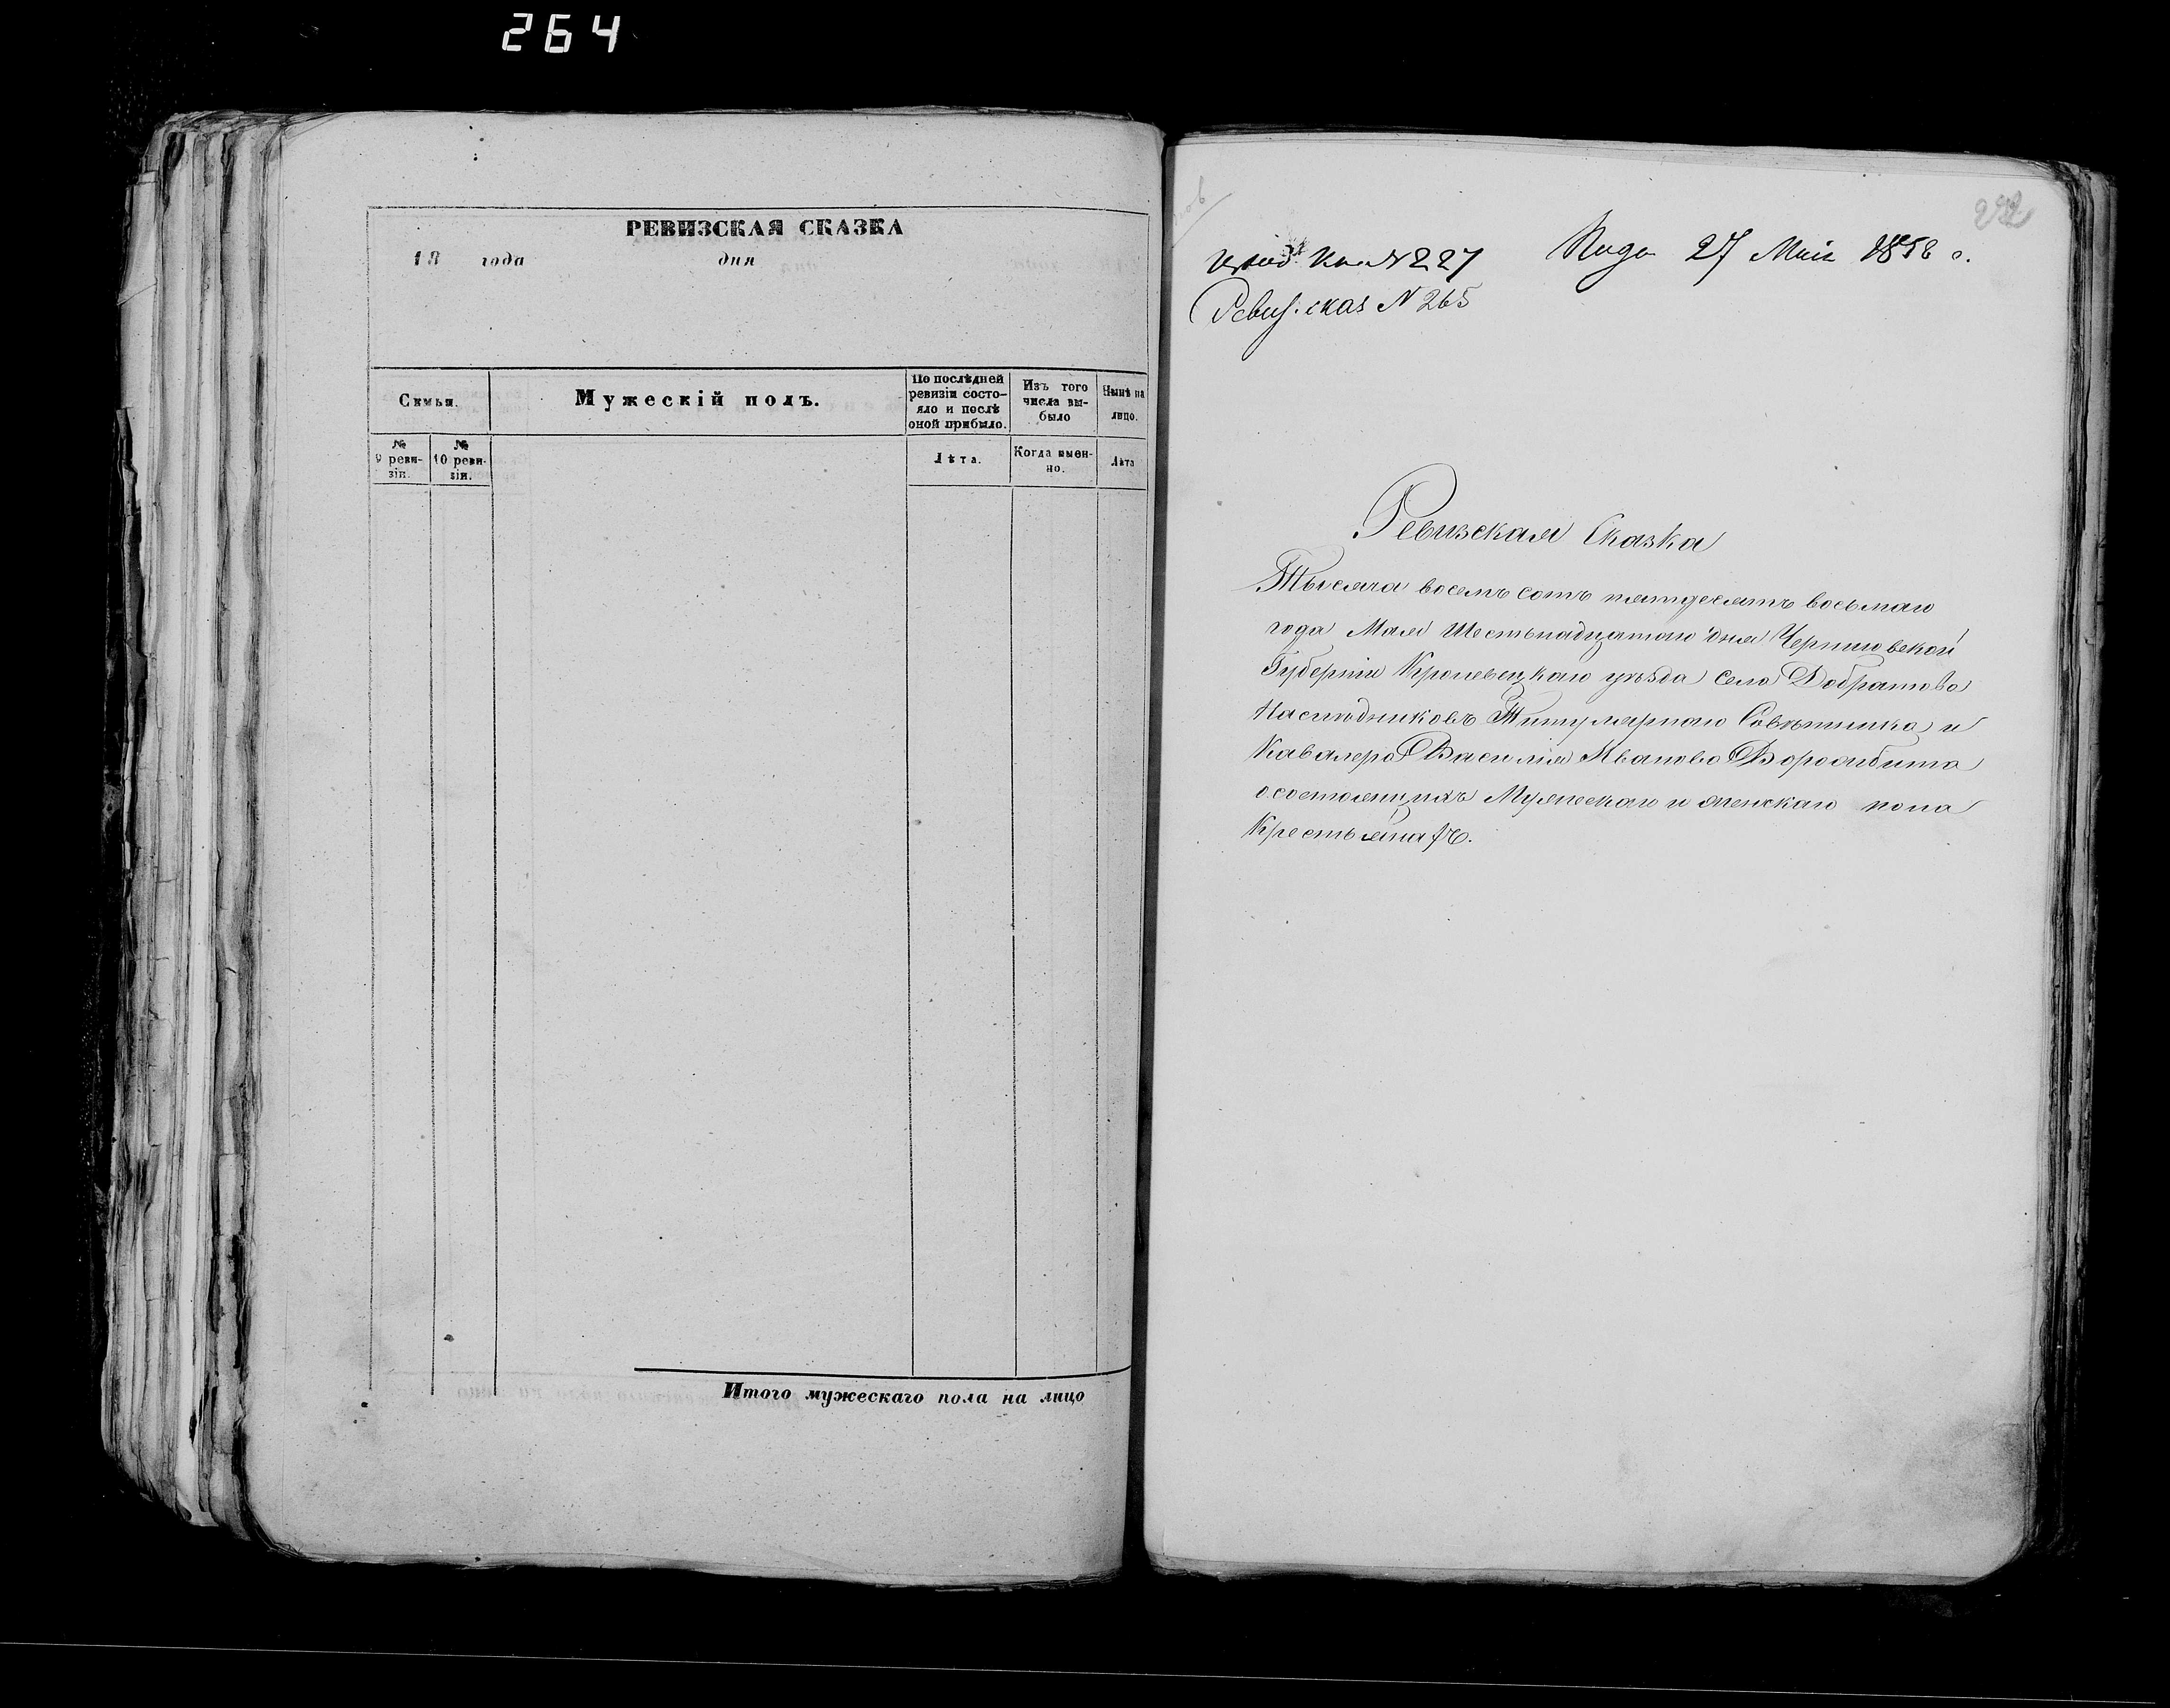 264
РЕВИЗСКАЯ СКАЗКА
18 года дня
Семьи.
Мужескій полъ.
По послѣдней ревизіи состо-яло и послѣ оной прибыло.
Изъ того числа вы-было
Нынѣ на лицо.
№ 9 реви-зіи.
№ 10 реви-зіи.
Лѣта.
Когда имен-но.
Лѣта
Итого мужескаго пола на лицо
N 227
27 Мая 1858 г.
Ревиз. сказ N 265
Ревизская Сказка
Тысяча восемь сотъ пятдесятъ восьмаго
года Мая Шестьнадцатаго дня Черниговской
Губерніи Кролевецкаго уѣзда Села Добратова
Наслѣдниковъ Титулярнаго Совѣтника и
Кавалера Василія Иванова Ворожбита
о состоящихъ Мужескаго и женскаго пола
Крестьянахъ.